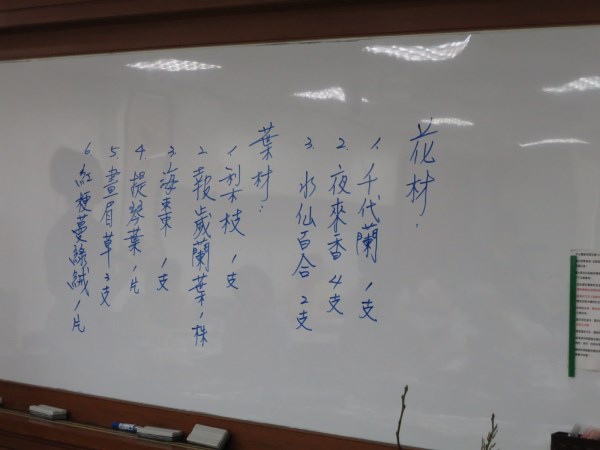 花材：
1. 千代蘭 1支
2. 夜來香 4支
3. 水仙百合 2支
葉材：
1. 梨枝 1支
2. 報歲蘭葉 1株
3. 海棗 1支
4. 提琴葉 1片
5. 畫眉草 3支
6. 紅梗蔓綠絨 1片